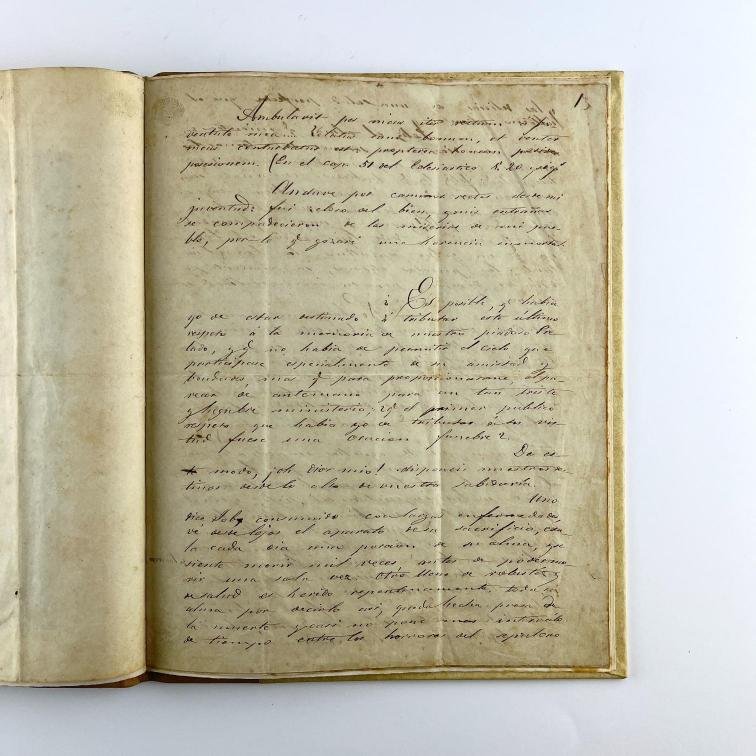 1
Ambulavit pes meus iter rectum, a ju-
ventute mea
bonam, et venter
meus conturbatus est propterea bonam
posesionem. (En el cap. 51 del Eclesiastico v. 20 y
Anduve por caminos rectos desde mi
juventud: fui zeloso del bien, y mis entrañas
se compadecieron de las miserias de mi pue-
blo, por lo q gozaré una herencia inmortal.
¿Es posible, q había
yo de estar destinado á tributar este último
respeto á la memoria de nuestro piadoso Pre-
lado, y q no había de permitir el cielo que
participase especialmente de su amistad y
bondades, mas q para proporcionarme
de antemano para un tan triste
y lúgubre ministerio; y q el primer publico
respeto que había yo de tributar á sus vir-
tud fuese una Oracion funebre?
De es-
te modo, ¡oh Dios mio! disponeis nuestros des-
tinos desde lo alto de vuestra sabiduría.
Uno
consumido con largas enfermedades
vé desde lejos el aparato de su sacrificio,
la cada dia una porcion de su alma, y se
siente morir mil veces antes de poder mo-
rir una sola vez. Otro lleno de robustez y
de salud es herido repentinamente, toda su
alma por decirlo asi, queda hecha presa de
la muerte y casi no pone mas intervalo
de tiempo entre los horrores del sepulcro